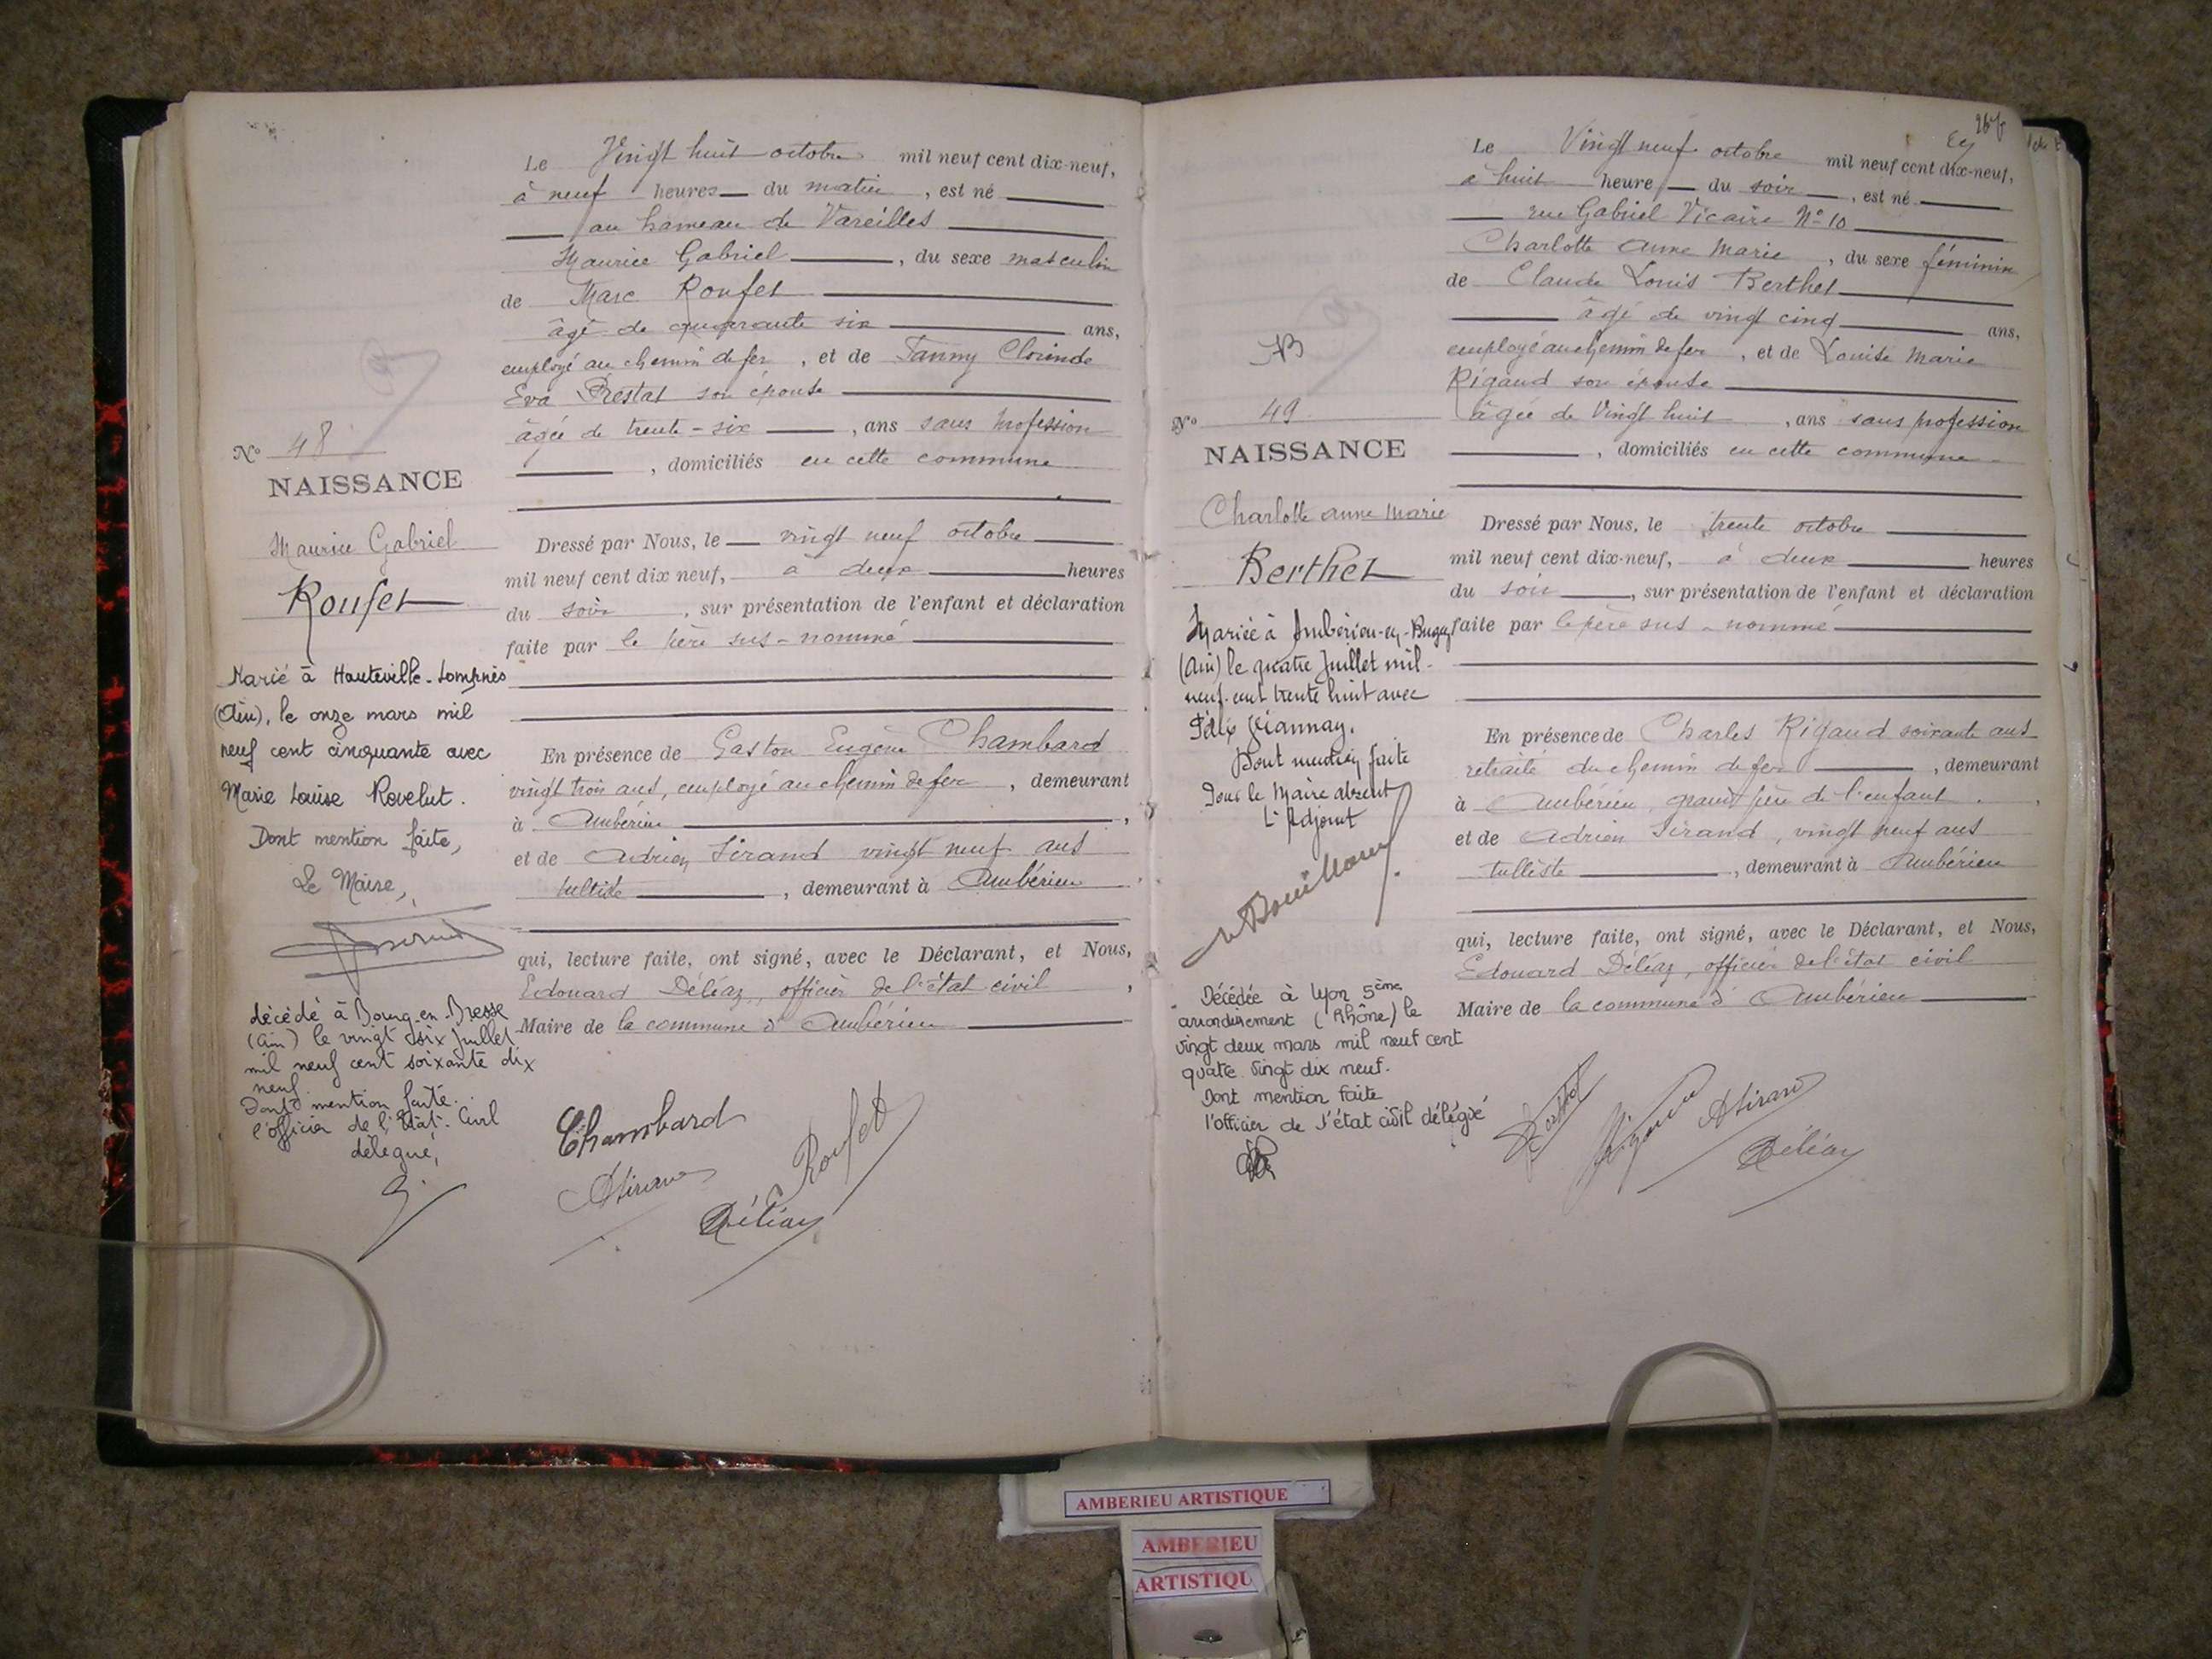 Le Vingt huit octobre mil neuf cent dix-neuf,
à neuf heures du matin, est né
au hameau de Vareilles
Maurice Gabriel, du sexe masculin
de Marc Roufet
âgé de quarante six ans,
employé au chemin de fer, et de Fanny Clorinde
Eva Prestat son épouse
âgée de trente-six, ans sans profession
, domiciliés en cette commune
Dressé par Nous, le vingt neuf octobre
mil neuf cent dix neuf, à deux heures
du soir, sur présentation de l'enfant et déclaration
faite par le père sus-nommé
En présence de Gaston Eugène Chambard
vingt trois ans, employé au chemin de fer, demeurant
à Ambérieu,
et de Adrien Sirand vingt neuf ans
tulliste, demeurant à Ambérieu
qui, lecture faite, ont signé, avec le Déclarant, et Nous,
Edouard Déléaz, officier de l'état civil,
Maire de la commune d'Ambérieu
Chambard
ASirand
Roufet
Déléaz
N° 48
NAISSANCE
Maurice Gabriel
Roufet
Marié à Hauteville-Lompnès
(Ain), le onze mars mil
neuf cent cinquante avec
Marie Louise Ravelut.
Dont mention faite,
Le Maire,
décédé à Bourg-en-Bresse
(Ain) le vingt six juillet
mil neuf cent soixante dix
neuf.
Dont mention faite.
l'officier de l'Etat-Civil
délégué,
Le Vingt neuf octobre mil neuf cent dix-neuf,
à huit heure du soir, est né
rue Gabriel Vicaire N° 10
Charlotte Anne Marie, du sexe féminin
de Claude Louis Berthet
âgé de vingt cinq ans,
employé au chemin de fer, et de Louise Marie
Rigaud son épouse
âgée de Vingt huit, ans sans profession
, domiciliés en cette commune
Dressé par Nous, le trente octobre
mil neuf cent dix-neuf, à deux heures
du soir, sur présentation de l'enfant et déclaration
faite par le père sus-nommé
En présence de Charles Rigaud soixante ans
retraité du chemin de fer, demeurant
à Ambérieu, grand père de l'enfant,
et de Adrien Sirand, vingt neuf ans
tulliste, demeurant à Ambérieu
qui, lecture faite, ont signé, avec le Déclarant, et Nous,
Edouard Déléaz, officier de l'état civil
Maire de la commune d'Ambérieu
Berthet
Rigaud
ASirand
Déléaz
N° 49
NAISSANCE
Charlotte Anne Marie
Berthet
Mariée à Ambérieu-en-Bugey
(Ain) le quatre Juillet mil-
neuf-cent trente huit avec
Félix Viannay.
Dont mention faite
Pour le Maire absent
L'Adjoint
Décédée à Lyon 5ème
arrondissement (Rhône) le
vingt deux mars mil neuf cent
quatre vingt dix neuf.
Dont mention faite
l'officier de l'état civil délégué
AMBERIEU ARTISTIQUE
AMBERIEU
ARTISTIQU